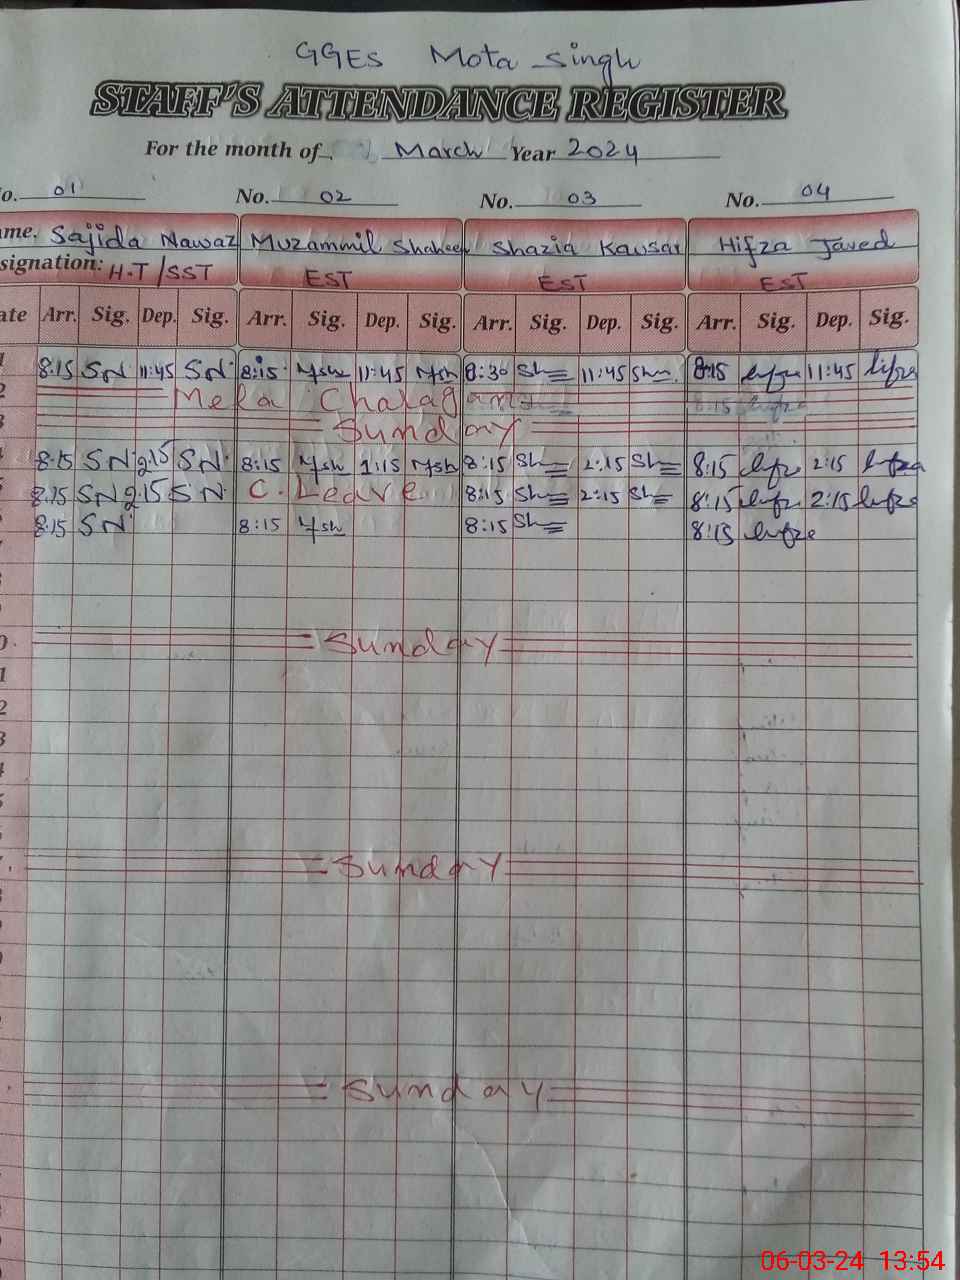 GGES Mota Singh
STAFF'S ATTENDANCE REGISTER
For the month of March Year 2024
o. 01 No. 02 No. 03 No. 04
ame. Sajida Nawaz Muzammil Shaheen Shazia Kausar Hifza Javed
signation: H.T/SST EST EST EST
ate Arr. Sig. Dep. Sig. Arr. Sig. Dep. Sig. Arr. Sig. Dep. Sig. Arr. Sig. Dep. Sig.
1 8:15 SN 11:45 SN 8:15 Msh 11:45 Msh 8:30 Sh 11:45 Sh 8:15 hifza 11:45 hifza
2 Mela Chalagan 8:15 hifza
3 Sunday
4 8:15 SN 2:15 SN 8:15 Msh 1:15 Msh 8:15 Sh 2:15 Sh 8:15 hifza 2:15 hifza
5 8:15 SN 2:15 SN C.Leave 8:15 Sh 2:15 Sh 8:15 hifza 2:15 hifza
8:15 SN 8:15 Msh 8:15 Sh 8:15 hifza
0 Sunday
1
2
3
4
5
Sunday
Sunday
06-03-24 13:54